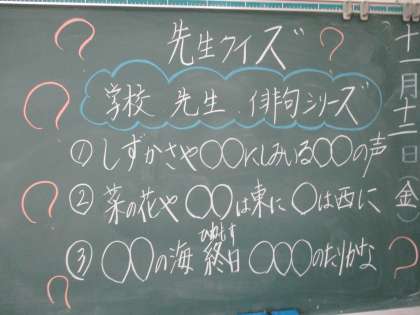 十一月十二日(金)
先生クイズ
学校 先生 . 俳句シリーズ
① しずかさや○○にしみいる○○の声
② 菜の花や ○○は東に ○は西に
③ ○○の海 終日 ○○○のたりかな
ひねもす